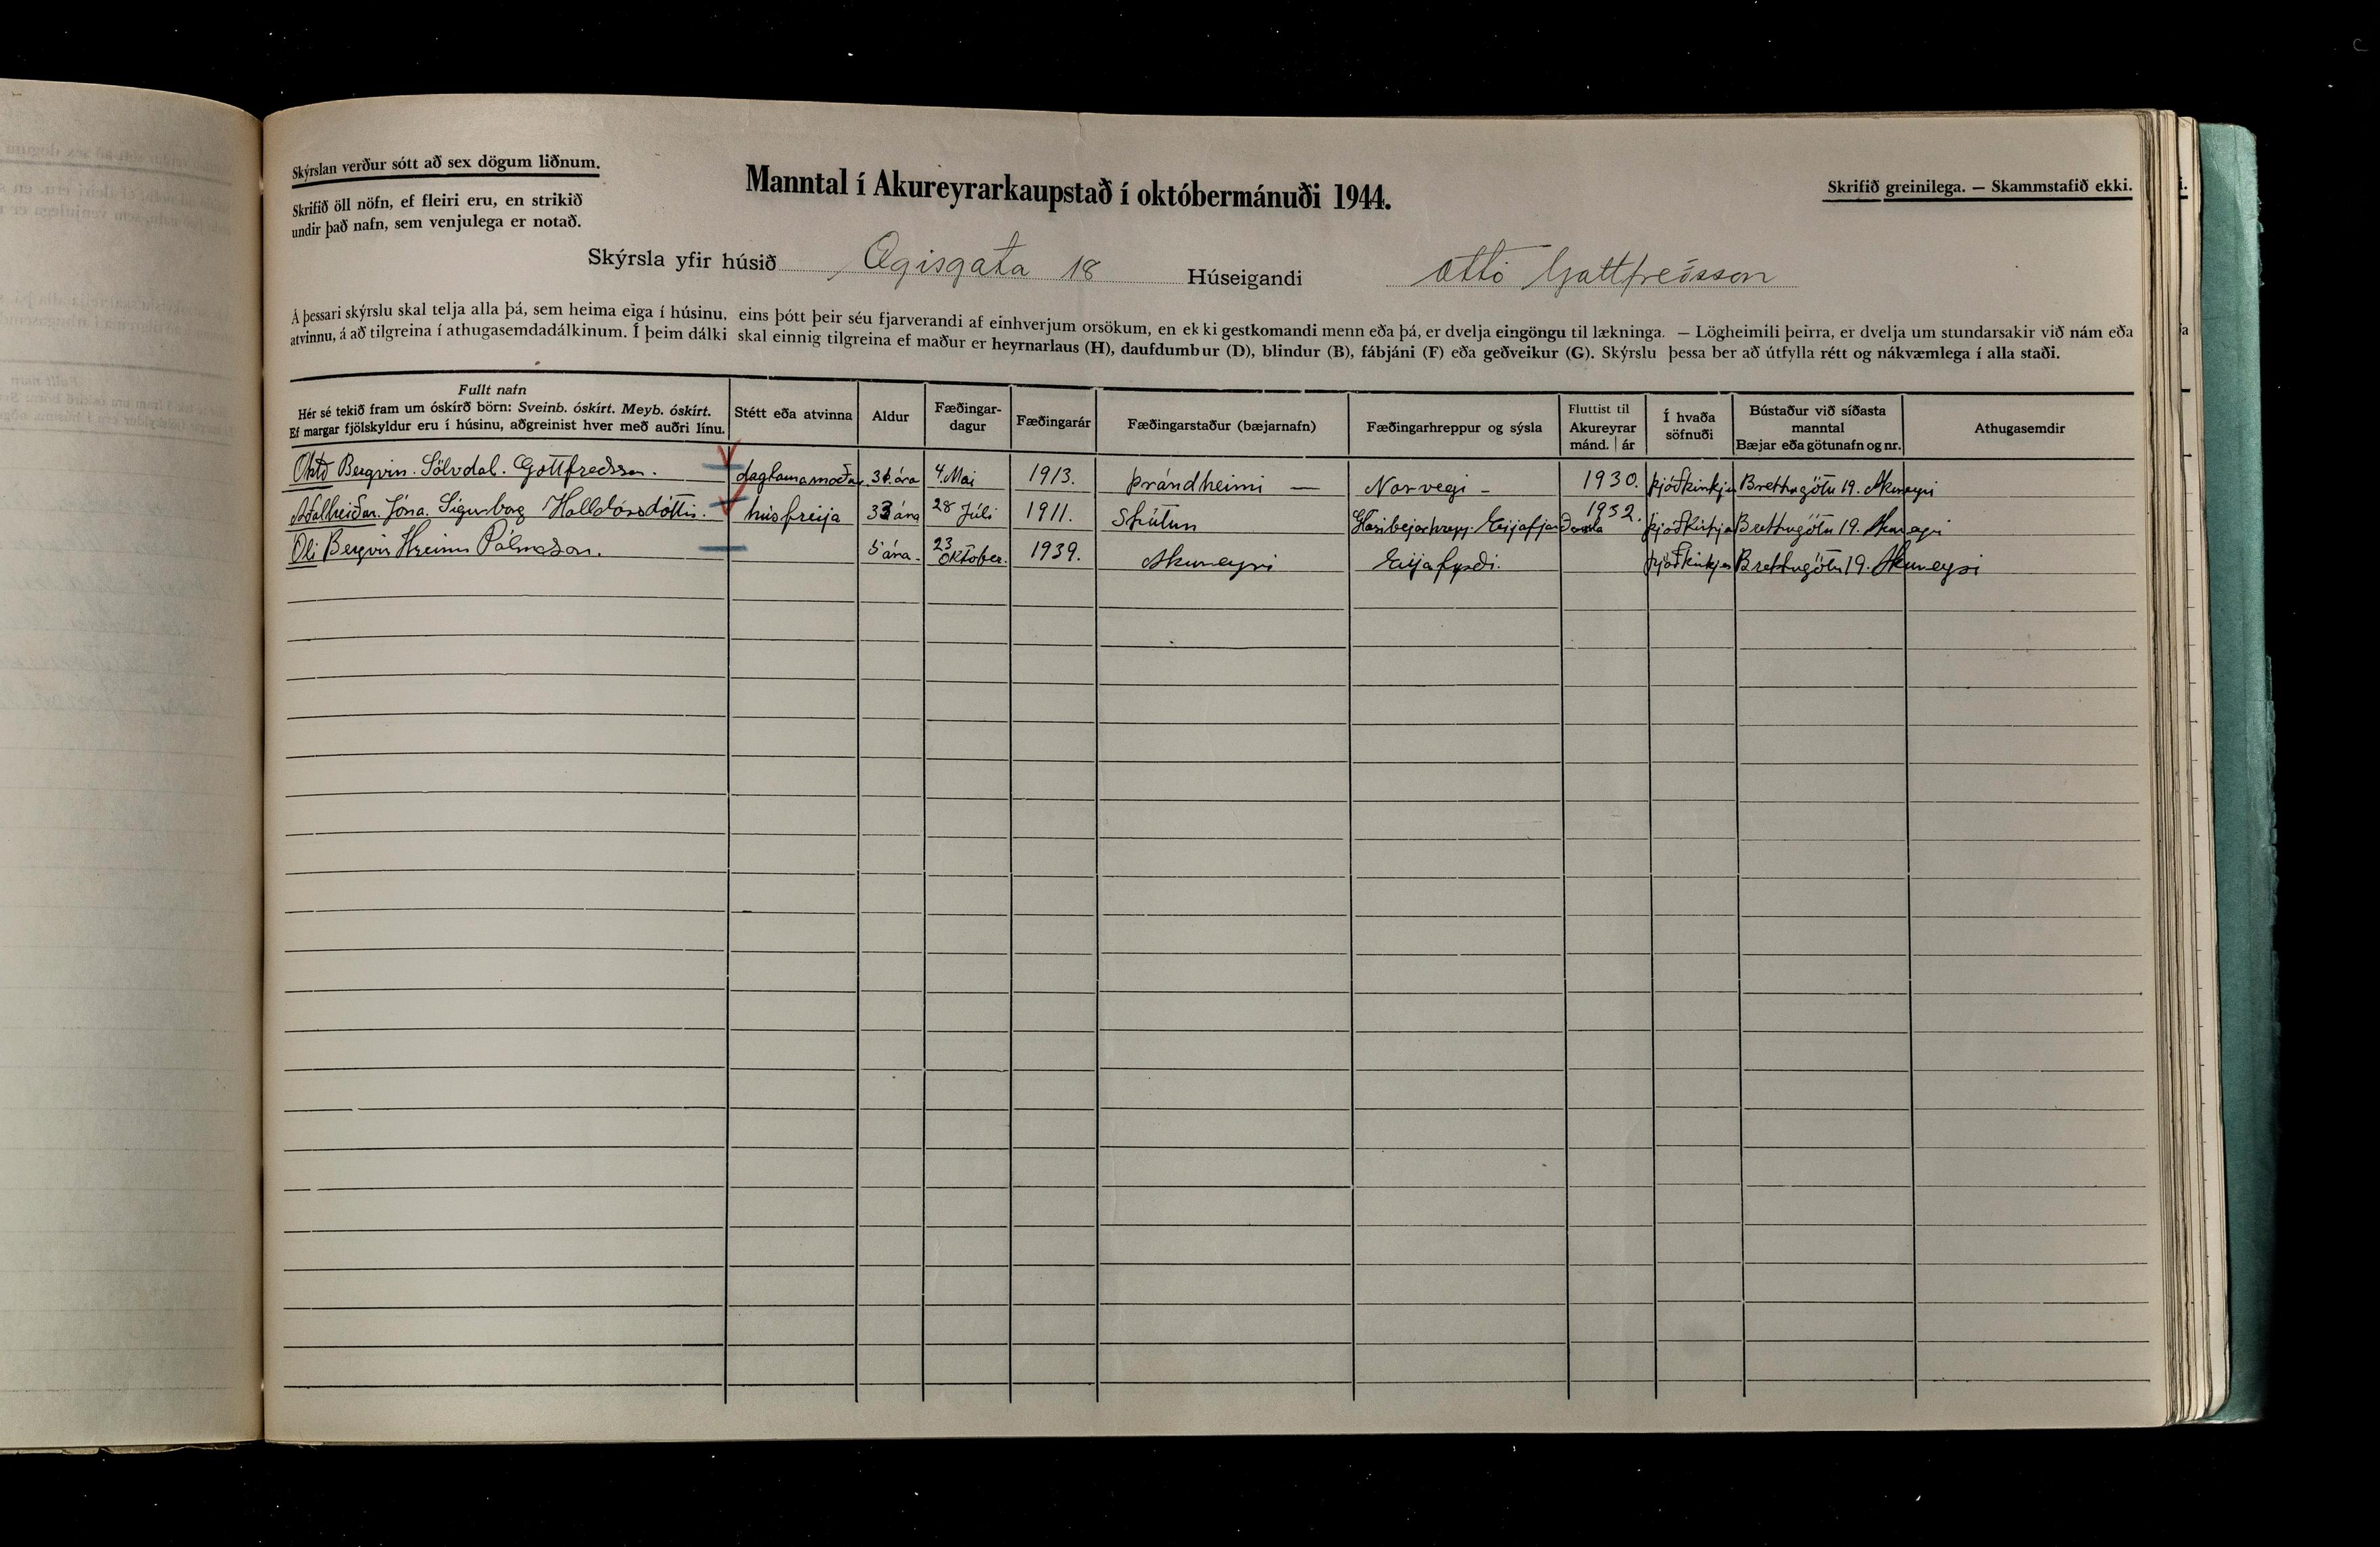 Skýrslan verður sótt að sex dögum liðnum.
Skrifið öll nöfn, ef fleiri eru, en strikið
undir það nafn, sem venjulega er notað.
Manntal í Akureyrarkaupstað í októbermánuði 1944.
Skrifið greinilega. — Skammstafið ekki.
Skýrsla yfir húsið Ægisgata 18 Húseigandi Ottó Gottfreðsson
Á þessari skýrslu skal telja alla þá, sem heima eiga í húsinu, eins þótt þeir séu fjarverandi af einhverjum orsökum, en ekki gestkomandi menn eða þá, er dvelja eingöngu til lækninga. — Lögheimili þeirra, er dvelja um stundarsakir við nám eða
atvinnu, á að tilgreina í athugasemdadálkinum. Í þeim dálki skal einnig tilgreina ef maður er heyrnarlaus (H), daufdumbur (D), blindur (B), fábjáni (F) eða geðveikur (G). Skýrslu þessa ber að útfylla rétt og nákvæmlega í alla staði.
Fullt nafn
Hér sé tekið fram um óskírð börn: Sveinb. óskírt. Meyb. óskírt.
Ef margar fjölskyldur eru í húsinu, aðgreinist hver með auðri línu.
Stétt eða atvinna
Aldur
Fæðingar-
dagur
Fæðingarár
Fæðingarstaður (bæjarnafn)
Fæðingarhreppur og sýsla
Fluttist til
Akureyrar
mánd. | ár
Í hvaða
söfnuði
Bústaður við síðasta
manntal
Bæjar eða götunafn og nr.
Athugasemdir
Ottó Bergvin. Sölvdal. Gottfredsson. 31. ára 4. Mai 1913. Þrándheimi — Norvegi - 1930. Þjóðkirkju Brekkugötu 19. Akureyri
Aðalheiður. Jóna. Sigurborg Halldórsdóttir. húsfreija 33 ára 28 Júli 1911. Skútum Eyjafjarðarsýsla 1932. Þjóðkirkja Brekkugötu 19. Akureyri
Oli Bergvin Hreinn Pálmason. 5 ára. 23 Oktober. 1939. Akureyri Eijafyrði. Þjóðkirkja Brekkugötu 19. Akureyri